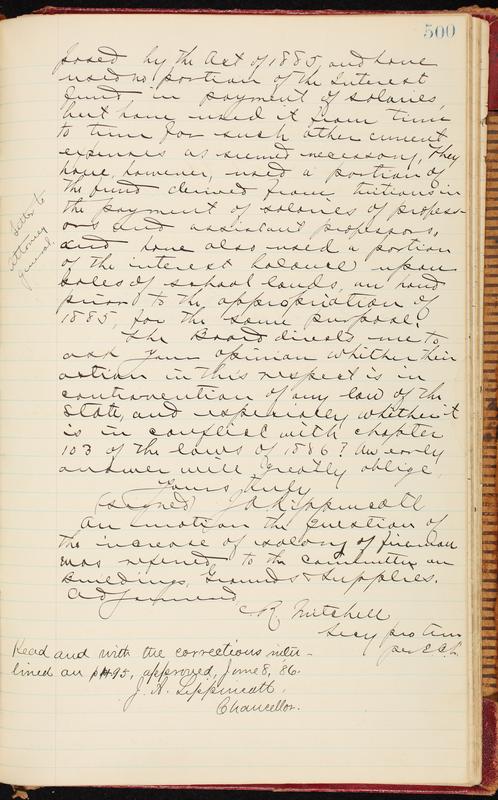 500
posed by the Act of 1885, and have
used no portion of the Interest
fund in payment of salaries,
but have used it from time
to time for such other current
expenses as seemed necessary, They
have, however, used a portion of
the fund derived from tuitions in
the payment of salaries of profess-
ors and assistant professors,
and have also used a portion
of the interest balance upon
sales of school lands, on hand
prior to the appropriation of
1885, for the same purpose.
Letter to
attorney
general.
The Board directs me to
ask your opinion whether their
action in this respect is in
contravention of any law of the
State, and especially whether it
is in conflict with chapter
103 of the laws of 1886? An early
answer will greatly oblige,
Yours truly
(signed) J A Lippincott
On motion the question of
the increase of salary of fireman
was referred to the committee on
Buildings, Grounds & Supplies.
Adjourned
C R Mitchell
Secy pro tem
per
Read and with the corrections inter-
lined on 495, approved, June 8, '86.
J. A. Lippincott,
Chancellor.